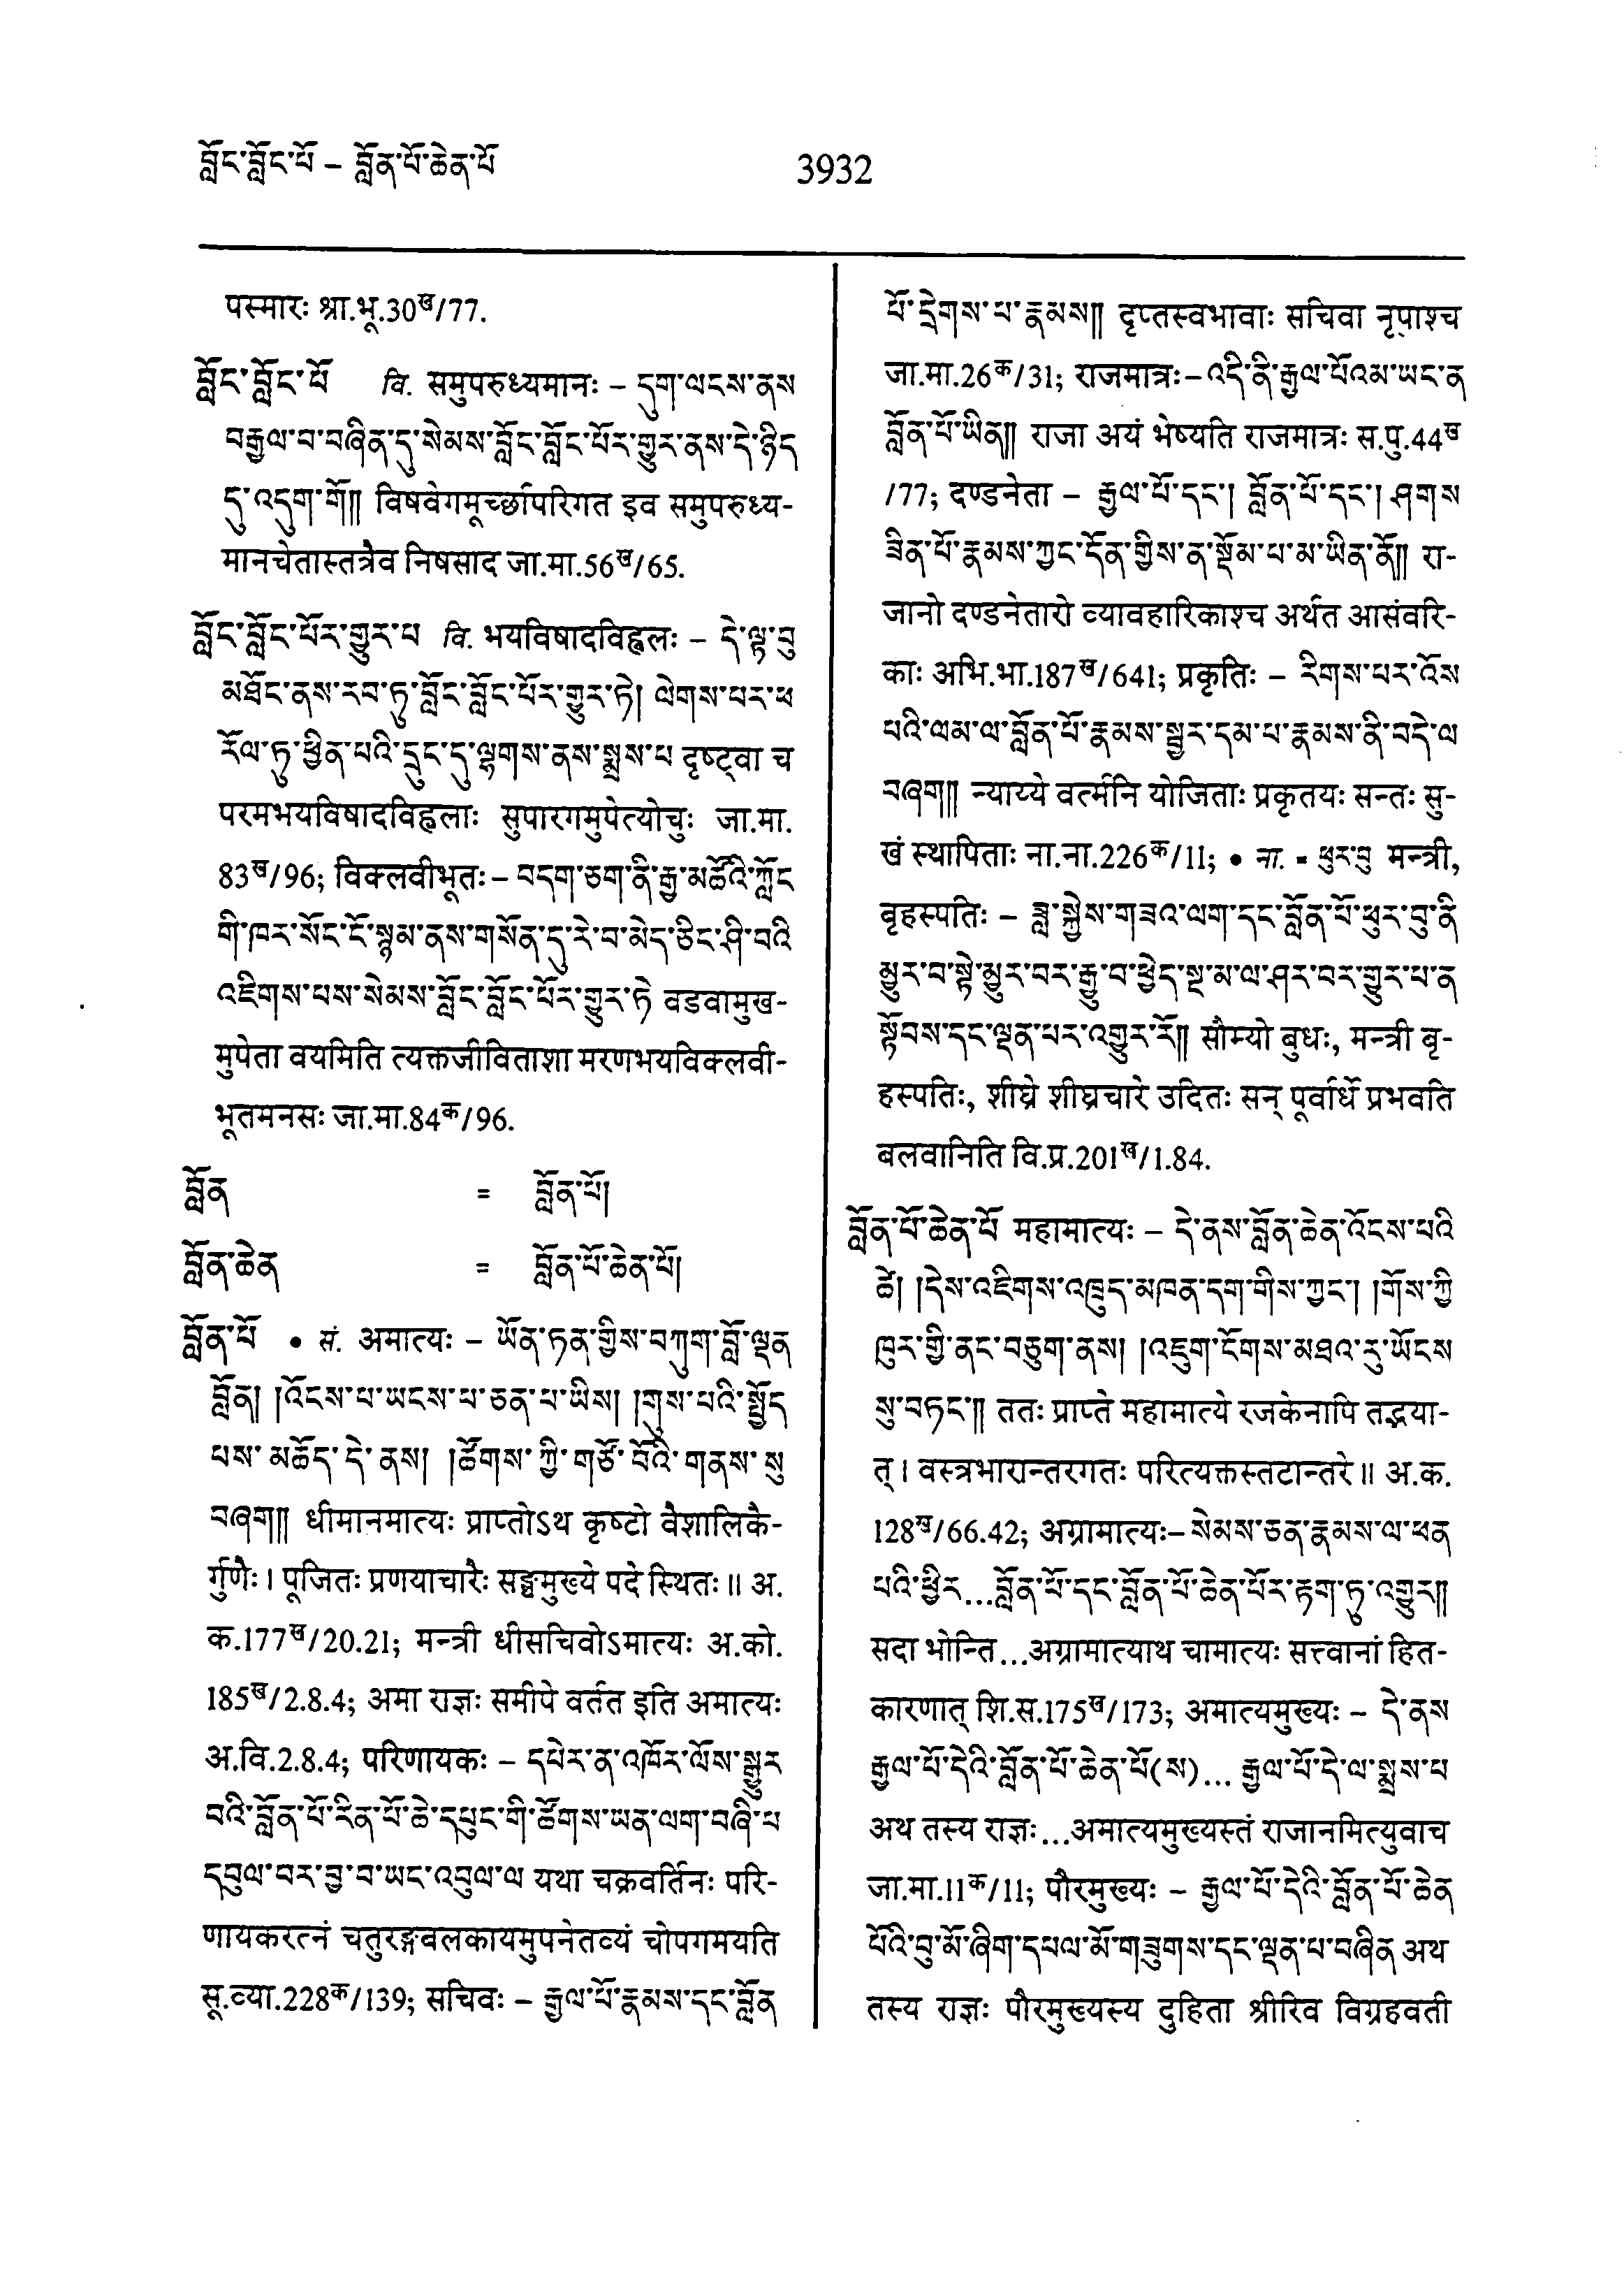 བློང་བློང་པོ – བློན་པོ་ཆེན་པོ
3932
पस्मारः श्रा.भू.30ख/77.
བློང་བློང་པོ वि. समुपरुध्यमानः – དུག་ལངས་ནས
བརྒྱལ་བ་བཞིན་དུ་སེམས་བློང་བློང་པོར་གྱུར་ནས་དེ་ཉིད
དུ་འདུག་གོ།། विषवेगमूर्च्छापरिगत इव समुपरुध्य-
मानचेतास्तत्रैव निषसाद जा.मा.56ख/65.
བློང་བློང་པོར་གྱུར་པ वि. भयविषादविह्वलः – དེ་ལྟ་བུ
མཐོང་ནས་རབ་ཏུ་བློང་བློང་པོར་གྱུར་ཏེ། ལེགས་པར་ཕ
རོལ་ཏུ་ཕྱིན་པའི་དྲུང་དུ་ལྷགས་ནས་སྨྲས་པ दृष्ट्वा च
परमभयविषादविह्वलाः सुपारगमुपेत्योचुः जा.मा.
83ख/96; विक्लवीभूतः – བདག་ཅག་ནི་རྒྱ་མཚོའི་ཀློང
གི་ཁར་སོང་ངོ་སྙམ་ནས་གསོན་དུ་རེ་བ་མེད་ཅིང་ཤི་བའི
འཇིགས་པས་སེམས་བློང་བློང་པོར་གྱུར་ཏེ वडवामुख-
मुपेता वयमिति त्यक्तजीविताशा मरणभयविक्लवी-
भूतमनसः जा.मा.84क/96.
བློན = བློན་པོ།
བློན་ཆེན = བློན་པོ་ཆེན་པོ།
བློན་པོ • सं. अमात्यः – ཡོན་ཏན་གྱིས་བཀུག་བློ་ལྡན
བློན། །འོངས་པ་ཡངས་པ་ཅན་པ་ཡིས། །གུས་པའི་སྤྱོད
པས་མཆོད་དེ་ནས། །ཚོགས་ཀྱི་གཙོ་བོའི་གནས་སུ
བཞག།། धीमानमात्यः प्राप्तोऽथ कृष्टो वैशालिकै-
र्गुणैः। पूजितः प्रणयाचारैः सङ्घमुख्ये पदे स्थितः॥ अ.
क.177ख/20.21; मन्त्री धीसचिवोऽमात्यः अ.को.
185ख/2.8.4; अमा राज्ञः समीपे वर्तत इति अमात्यः
अ.वि.2.8.4; परिणायकः – དཔེར་ན་འཁོར་ལོས་སྒྱུར
བའི་བློན་པོ་རིན་པོ་ཆེ་དཔུང་གི་ཚོགས་ཡན་ལག་བཞི་པ
དབུལ་བར་བྱ་བ་ཡང་འབུལ་ལ यथा चक्रवर्तिनः परि-
णायकरत्नं चतुरङ्गबलकायमुपनेतव्यं चोपगमयति
सू.व्या.228क/139; सचिवः – རྒྱལ་པོ་རྣམས་དང་བློན
པོ་དྲེགས་པ་རྣམས།། दृप्तस्वभावाः सचिवा नृपाश्च
जा.मा.26क/31; राजमात्रः – འདི་ནི་རྒྱལ་པོའམ་ཡང་ན
བློན་པོ་ཡིན།། राजा अयं भेष्यति राजमात्रः स.पु.44ख
/77; दण्डनेता – རྒྱལ་པོ་དང་། བློན་པོ་དང་། ཤགས
ཟིན་པོ་རྣམས་ཀྱང་དོན་གྱིས་ན་སྡོམ་པ་མ་ཡིན་ནོ།། रा-
जानो दण्डनेतारो व्यावहारिकाश्च अर्थत आसंवरि-
काः अभि.भा.187ख/641; प्रकृतिः – རིགས་པར་འོས
པའི་ལམ་ལ་བློན་པོ་རྣམས་སྦྱར་དམ་པ་རྣམས་ནི་བདེ་ལ
བཞག།། न्याय्ये वर्त्मनि योजिताः प्रकृतयः सन्तः सु-
खं स्थापिताः ना.ना.226क/11; • ना. = ཕུར་བུ मन्त्री,
बृहस्पतिः – ཟླ་སྐྱེས་གཟའ་ལག་དང་བློན་པོ་ཕུར་བུ་ནི
མྱུར་བ་སྟེ་མྱུར་བར་རྒྱུ་བ་ཕྱེད་སྔ་མ་ལ་ཤར་བར་གྱུར་པ་ན
སྟོབས་དང་ལྡན་པར་འགྱུར་རོ།། सौम्यो बुधः, मन्त्री बृ-
हस्पतिः, शीघ्रे शीघ्रचारे उदितः सन् पूर्वार्धे प्रभवति
बलवानिति वि.प्र.201ख/1.84.
བློན་པོ་ཆེན་པོ महामात्यः – དེ་ནས་བློན་ཆེན་འོངས་པའི
ཚེ། །དེས་འཇིགས་འཁྲུད་མཁན་དག་གིས་ཀྱང་། །གོས་ཀྱི
ཁུར་གྱི་ནང་བཅུག་ནས། །འཇུག་ངོགས་མཐའ་རུ་ཡོངས
སུ་བཏང་།། ततः प्राप्ते महामात्ये रजकेनापि तद्भया-
त्। वस्त्रभारान्तरगतः परित्यक्तस्तटान्तरे॥ अ.क.
128ख/66.42; अग्रामात्यः – སེམས་ཅན་རྣམས་ལ་ཕན
པའི་ཕྱིར...བློན་པོ་དང་བློན་པོ་ཆེན་པོར་རྟག་ཏུ་འགྱུར།།
सदा भोन्ति...अग्रामात्याथ चामात्यः सत्त्वानां हित-
कारणात् शि.स.175ख/173; अमात्यमुख्यः – དེ་ནས
རྒྱལ་པོ་དེའི་བློན་པོ་ཆེན་པོ(ས)... རྒྱལ་པོ་དེ་ལ་སྨྲས་པ
अथ तस्य राज्ञः...अमात्यमुख्यस्तं राजानमित्युवाच
जा.मा.11क/11; पौरमुख्यः – རྒྱལ་པོ་དེའི་བློན་པོ་ཆེན
པོའི་བུ་མོ་ཞིག་དཔལ་མོ་གཟུགས་དང་ལྡན་པ་བཞིན अथ
तस्य राज्ञः पौरमुख्यस्य दुहिता श्रीरिव विग्रहवती